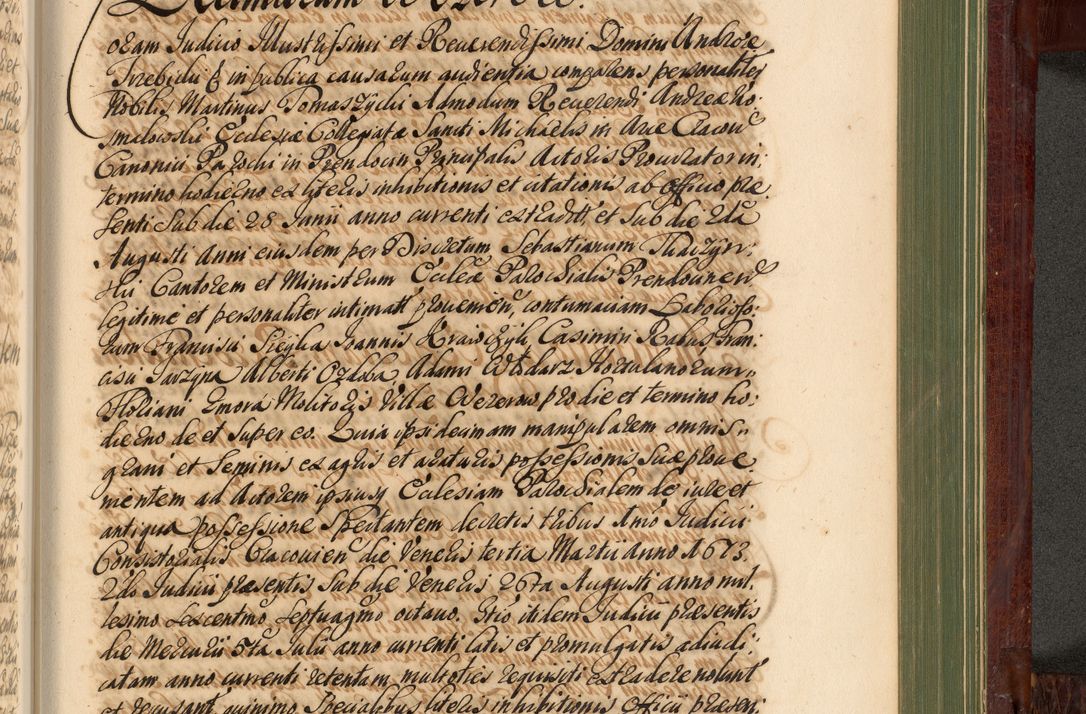 oram Judicio Illustrissimi et Reverendissimi Domini Andreæ
Trzebicki & in publica causarum audientia comparens personaliter
Nobilis Martinus Tomaszycki Admodum Reverendi Andreæ Ro:
smalowski Ecclesiæ Collegiatæ Sancti Michaelis in Arce Cracov
Canonici Parochi in Prendocin Principalis Actoris Procurator in
termino hodierno ex literis inhibitionis et citationis ab officio præ
senti sub die 28 Junii anno currenti extradit et sub die 2da
Augusti Anni eiusdem per Discretum Sebastianum
Cantorem et Ministrum Ecclesiæ Parochialis Prendocinen
legitime et personaliter intimatt provenien contumaciam Laborioso:
rum Francisci Szeglia Joannis Krawczyk, Casimiri Rabus Fran:
cisci Jarzyna Alberti Ozdoba Adami Wlodarz Hortulanorum
Floriani Zmora Molitoris Villæ Wezerow pro die et termino ho:
dierno de et super eo. Quia ipsi decimam manipularem omnis
grani et seminis ex agris et araturis possessionis suæ prove
nientem ad Actorem ipsiusq Ecclesiam Parochialem de iure et
antiqua possessione spectantem decretis tribus Imo Judicii
Consistorialis Cracovien die Veneris tertia Martii anno 1673
2do Judicii præsentis sub die Veneris 26ta Augusti anno mil:
lesimo sexcentmo septuagmo octavo. 3tio itidem Judicii præsentis
die Mercurii 5ta Julii anno currenti latis et promulgatis adiudi:
catam anno currenti retentam multoties requisiti extradere nolunt
et recusant quinimo specialibus literis inhibitionis Officii præsen: